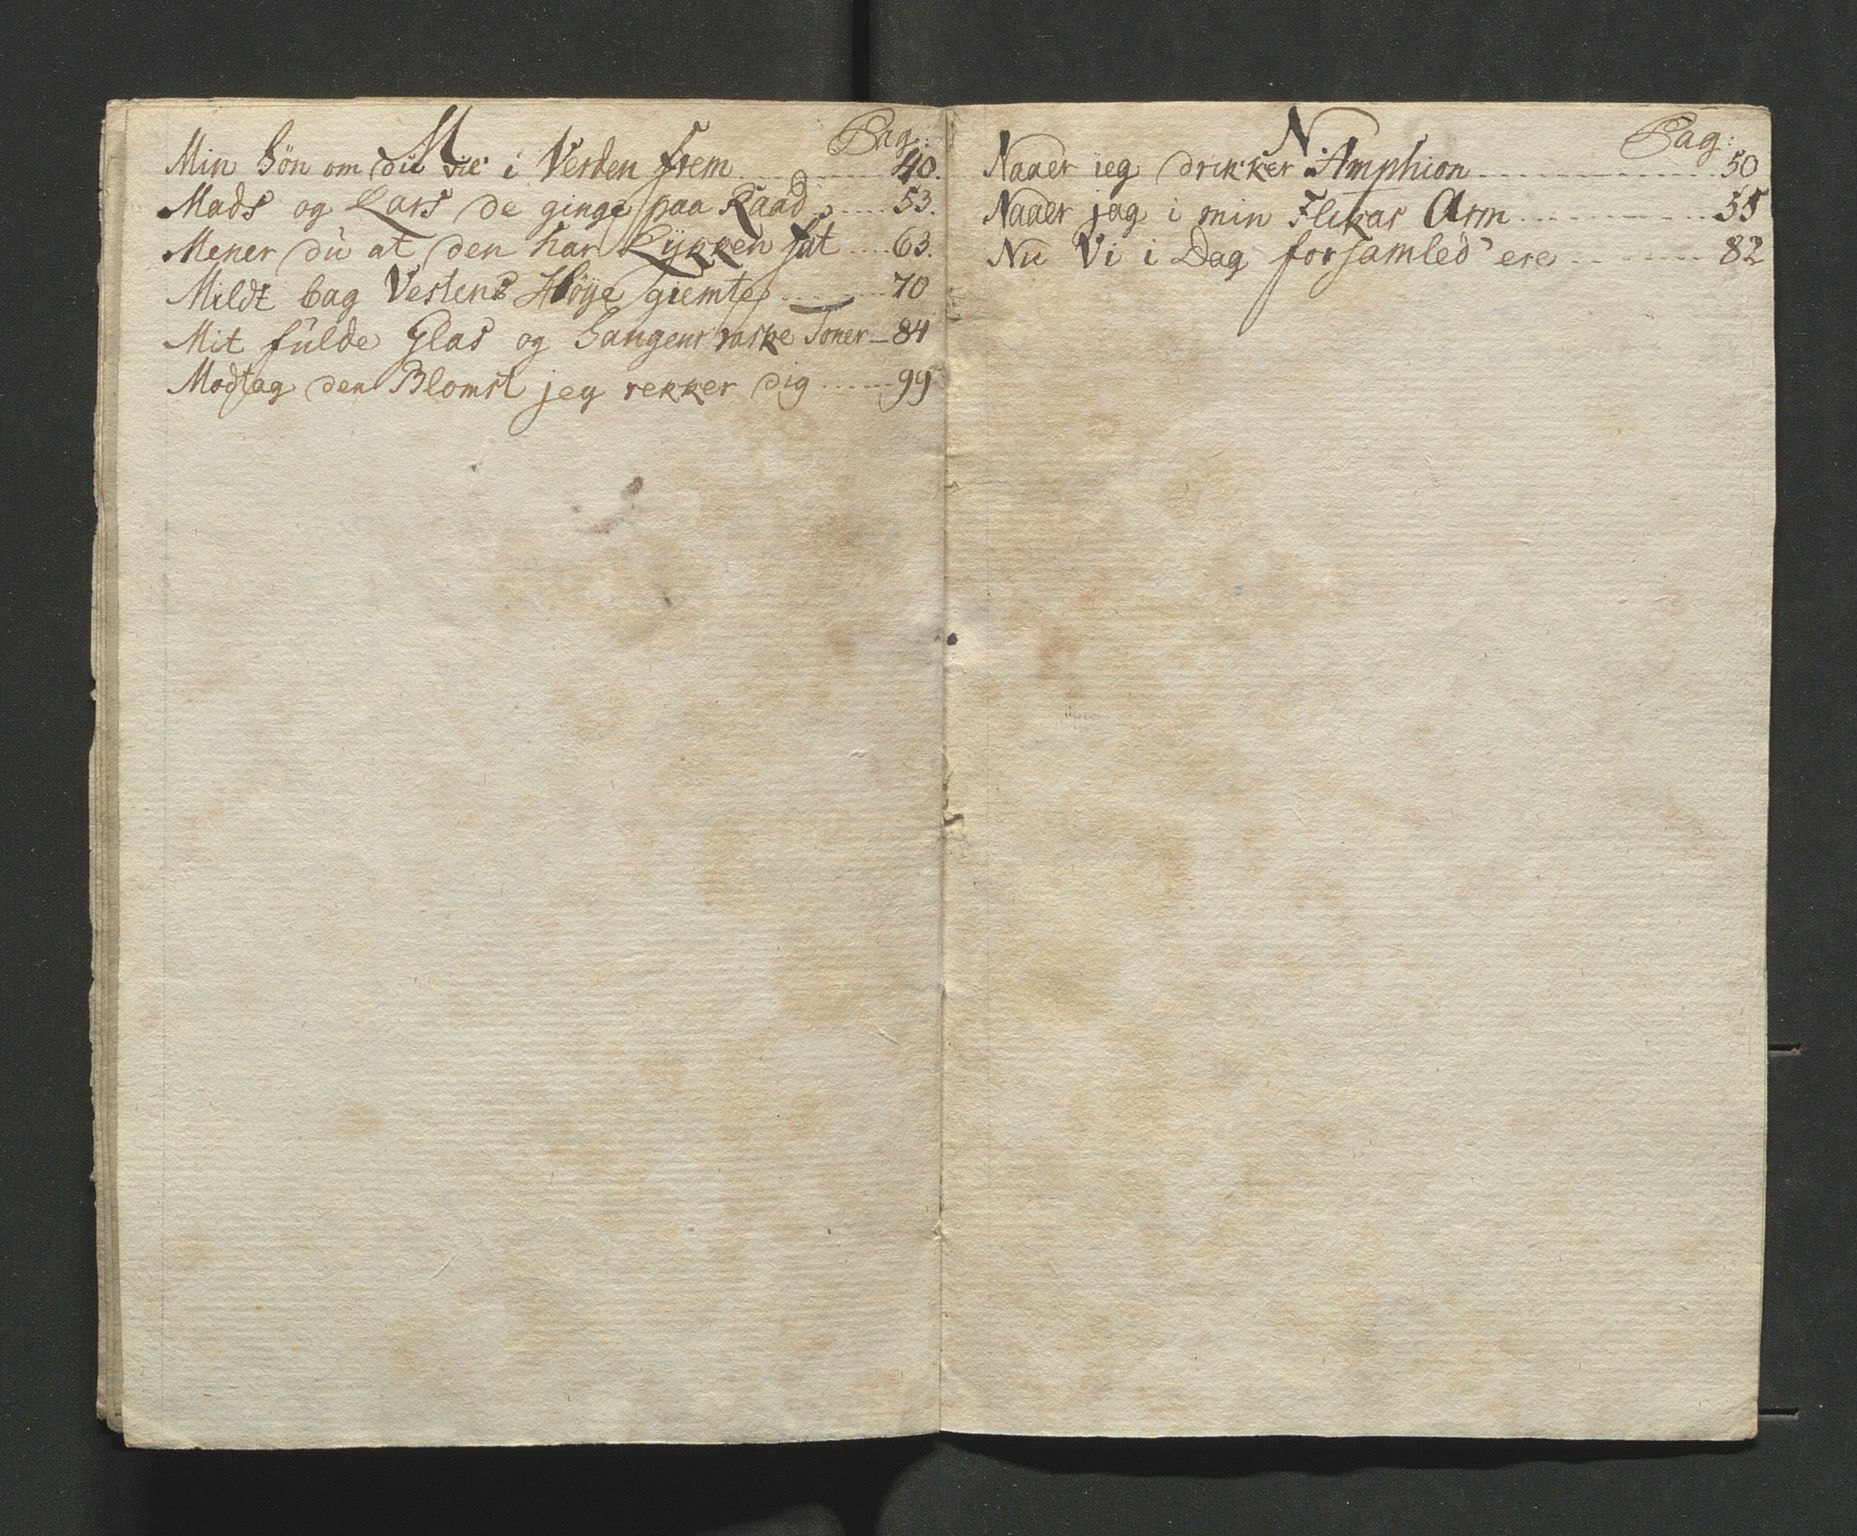 M Pag:
Min Sön om du vil i Verden frem 40.
Mads og Lars de ginge paa Raad 53.
Mener du at den har Lykken fat 63.
Mildt bag Vestens Höye giemte 70
Mit fulde Glas og Sangens raske Toner 84
Modtag den Blomst jeg rekker dig 99
N Pag:
Naaer ieg drikker Amphion 50
Naaer jag i min Flikas Arm 55
Nu Vi i Dag forsamled' ere 82